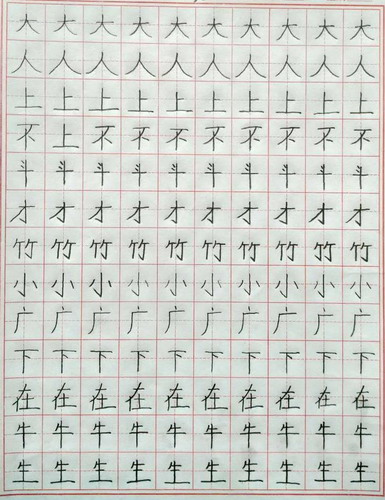 大大大大大大大大大大
人人人人人人人人人人
上上上上上上上上上上
不上不不不不不不不不
斗斗斗斗斗斗斗斗斗斗
才才才才才才才才才才
竹竹竹竹竹竹竹竹竹竹
小小小小小小小小小小
广广广广广广广广广广
下下下下下下下下下下
在在在在在在在在在在
牛牛牛牛牛牛牛牛牛牛
生生生生生生生生生生